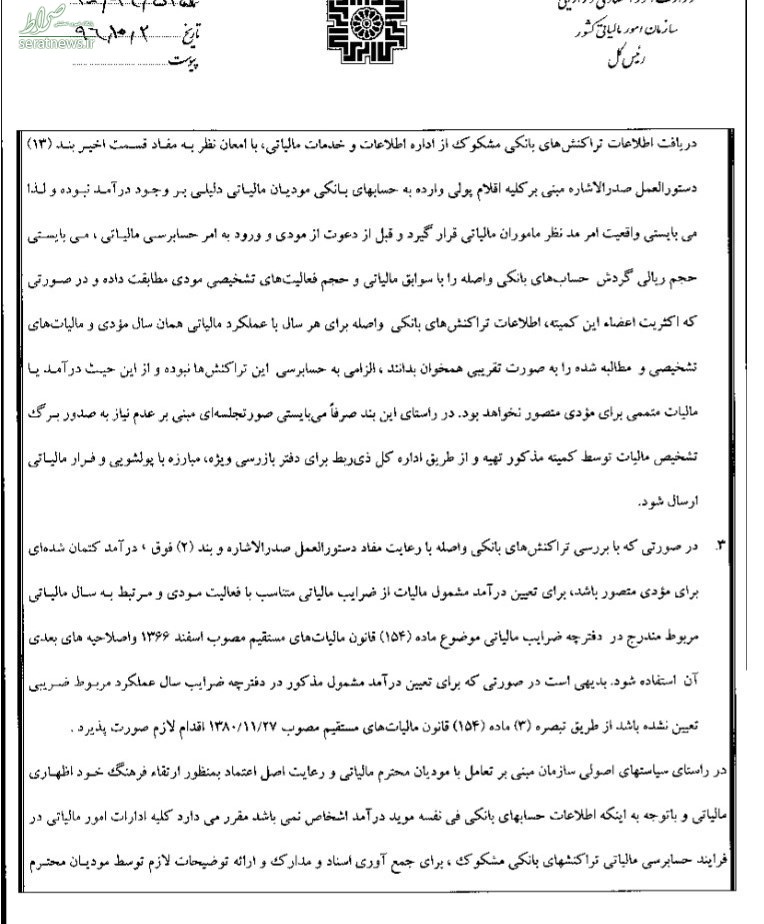 صراط
seratnews.ir
سازمان امور مالیاتی کشور
رئیس کل
تاریخ ۹۶/۱۰/۲
پیوست
دریافت اطلاعات تراکنش‌های بانکی مشکوک از اداره اطلاعات و خدمات مالیاتی، با امعان نظر به مفاد قسمت اخیر بند (۱۳)
دستورالعمل صدرالاشاره مبنی بر کلیه اقلام پولی وارده به حسابهای بانکی مودیان مالیاتی دلیلی بر وجود درآمد نبوده و لذا
می بایستی واقعیت امر مد نظر ماموران مالیاتی قرار گیرد و قبل از دعوت از مودی و ورود به امر حسابرسی مالیاتی ، می بایستی
حجم ریالی گردش حساب‌های بانکی واصله را با سوابق مالیاتی و حجم فعالیت‌های تشخیصی مودی مطابقت داده و در صورتی
که اکثریت اعضاء این کمیته، اطلاعات تراکنش‌های بانکی واصله برای هر سال با عملکرد مالیاتی همان سال مؤدی و مالیات‌های
تشخیصی و مطالبه شده را به صورت تقریبی همخوان بدانند ، الزامی به حسابرسی این تراکنش‌ها نبوده و از این حیث درآمد یا
مالیات متممی برای مؤدی متصور نخواهد بود. در راستای این بند صرفاً می‌بایستی صورتجلسه‌ای مبنی بر عدم نیاز به صدور برگ
تشخیص مالیات توسط کمیته مذکور تهیه و از طریق اداره کل ذی‌ربط برای دفتر بازرسی ویژه، مبارزه با پولشویی و فرار مالیاتی
ارسال شود.
۳. در صورتی که با بررسی تراکنش‌های بانکی واصله با رعایت مفاد دستورالعمل صدرالاشاره و بند (۲) فوق ، درآمد کتمان شده‌ای
برای مؤدی متصور باشد، برای تعیین درآمد مشمول مالیات از ضرایب مالیاتی متناسب با فعالیت مودی و مرتبط به سال مالیاتی
مربوط مندرج در دفترچه ضرایب مالیاتی موضوع ماده (۱۵۴) قانون مالیات‌های مستقیم مصوب اسفند ۱۳۶۶ واصلاحیه های بعدی
آن استفاده شود. بدیهی است در صورتی که برای تعیین درآمد مشمول مذکور در دفترچه ضرایب سال عملکرد مربوط ضریبی
تعیین نشده باشد از طریق تبصره (۳) ماده (۱۵۴) قانون مالیات‌های مستقیم مصوب ۱۳۸۰/۱۱/۲۷ اقدام لازم صورت پذیرد .
در راستای سیاستهای اصولی سازمان مبنی بر تعامل با مودیان محترم مالیاتی و رعایت اصل اعتماد بمنظور ارتقاء فرهنگ خود اظهاری
مالیاتی و باتوجه به اینکه اطلاعات حسابهای بانکی فی نفسه موید درآمد اشخاص نمی باشد مقرر می دارد کلیه ادارات امور مالیاتی در
فرایند حسابرسی مالیاتی تراکنشهای بانکی مشکوک ، برای جمع آوری اسناد و مدارک و ارائه توضیحات لازم توسط مودیان محترم